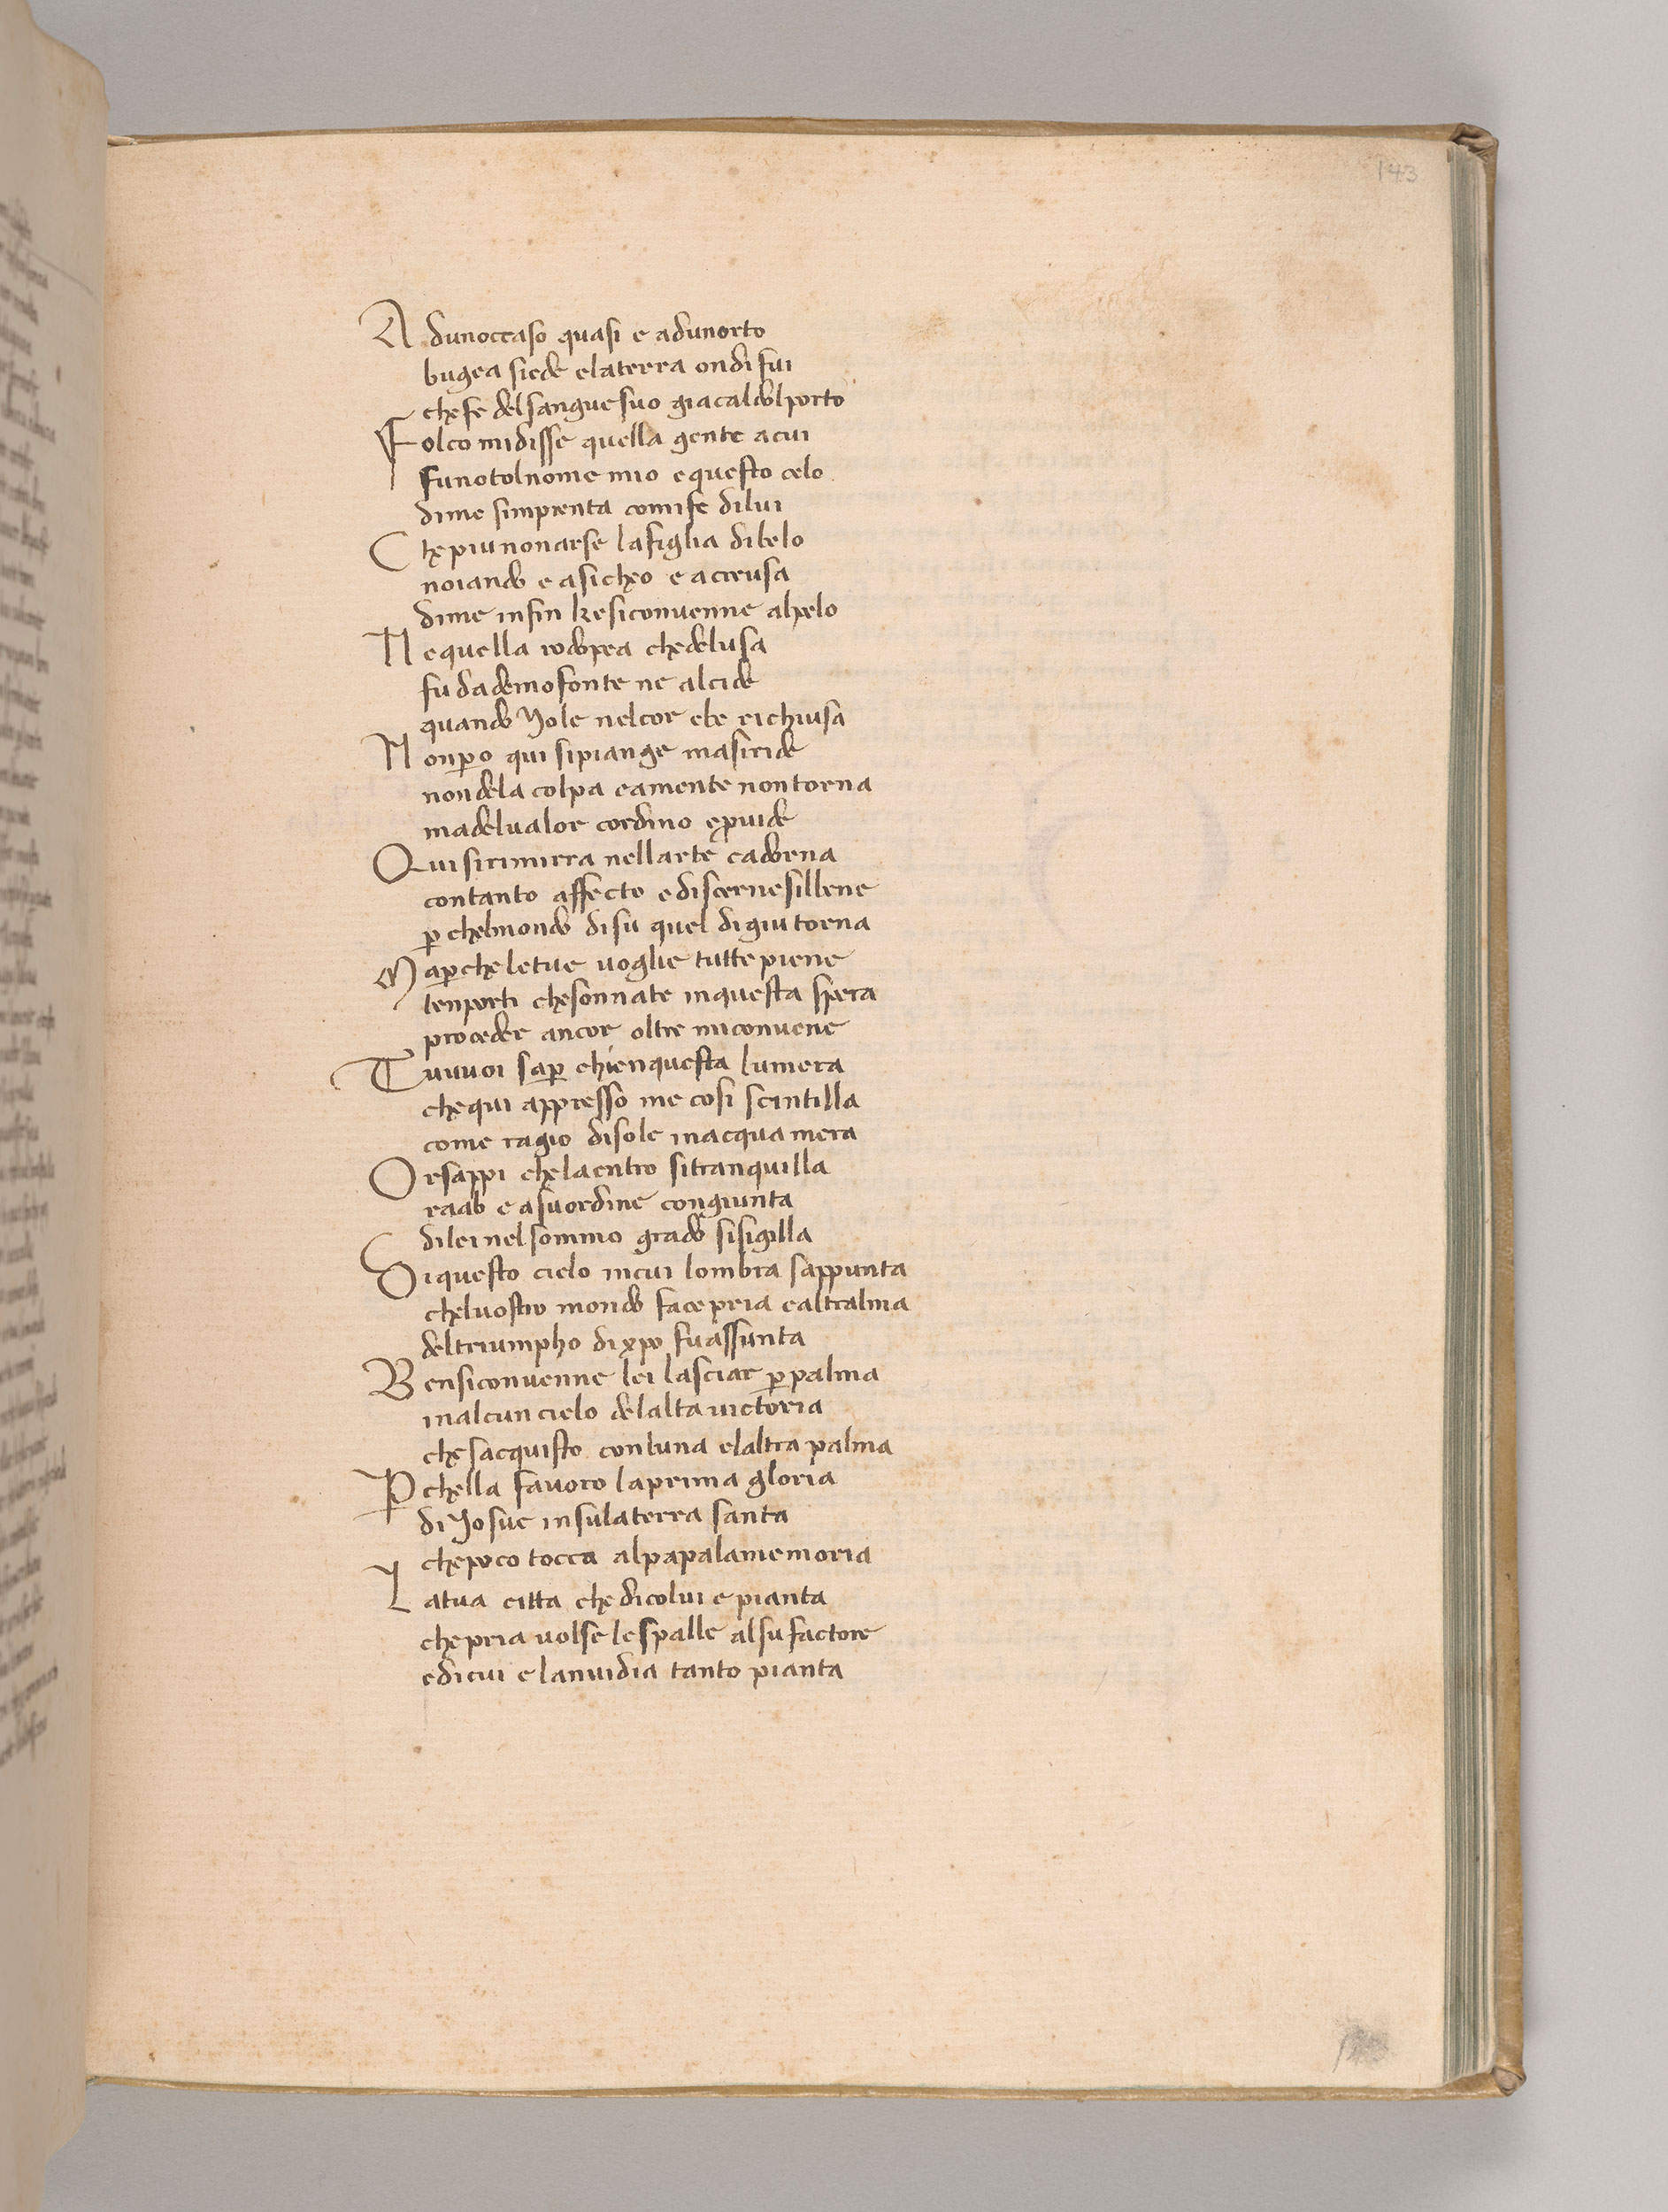 143
A dunoccaso quasi e adunorto
bugea siede elaterra ondi fui
che fe del sangue suo gia caldolporto
F olco midisse quella gente acui
funotolnome mio e questo celo
dime simprenta comife dilui
C he piu nonarse lafiglia dibelo
noiando e asicheo e acreusa
dime infin ke siconvenne alpelo
N e quella rodopea che delusa
fu dademofonte ne alcide
quando Jole nelcor ebe richiusa
N onp̄o qui sipiange masiride
non dela colpa camente nontorna
madelualor cordino e p̄uide
Q ui sirimirra nellarte cadorna
contanto affecto e discerne sillene
p̄ chelmondo disu quel digiu torna
M ap̄che letue voglie tutte piene
tenporti chesonnate inquesta spera
proceder ancor oltre miconvene
T uvuoi sap̄ chienquesta lumera
chequi appresso me cosi scintilla
come ragio disole inacqua mera
O rsappi che laentro sitranquilla
raab e asuordine congiunta
dilei nel sommo grado sisigilla
D iquesto cielo incui lombra sappunta
chelvostro mondo face pria caltralma
deltriumpho di xpo fuassunta
B ensiconvenne lei lasciar p̄ palma
inalcun cielo delalta victoria
che sacquisto conluna elaltra palma
P̄ chella favoro laprima gloria
di Josue insulaterra santa
chepoco tocca alpapalamemoria
L atua citta che dicolui e pianta
chepria volse lespalle alsufactore
edicui e lanvidia tanto pianta